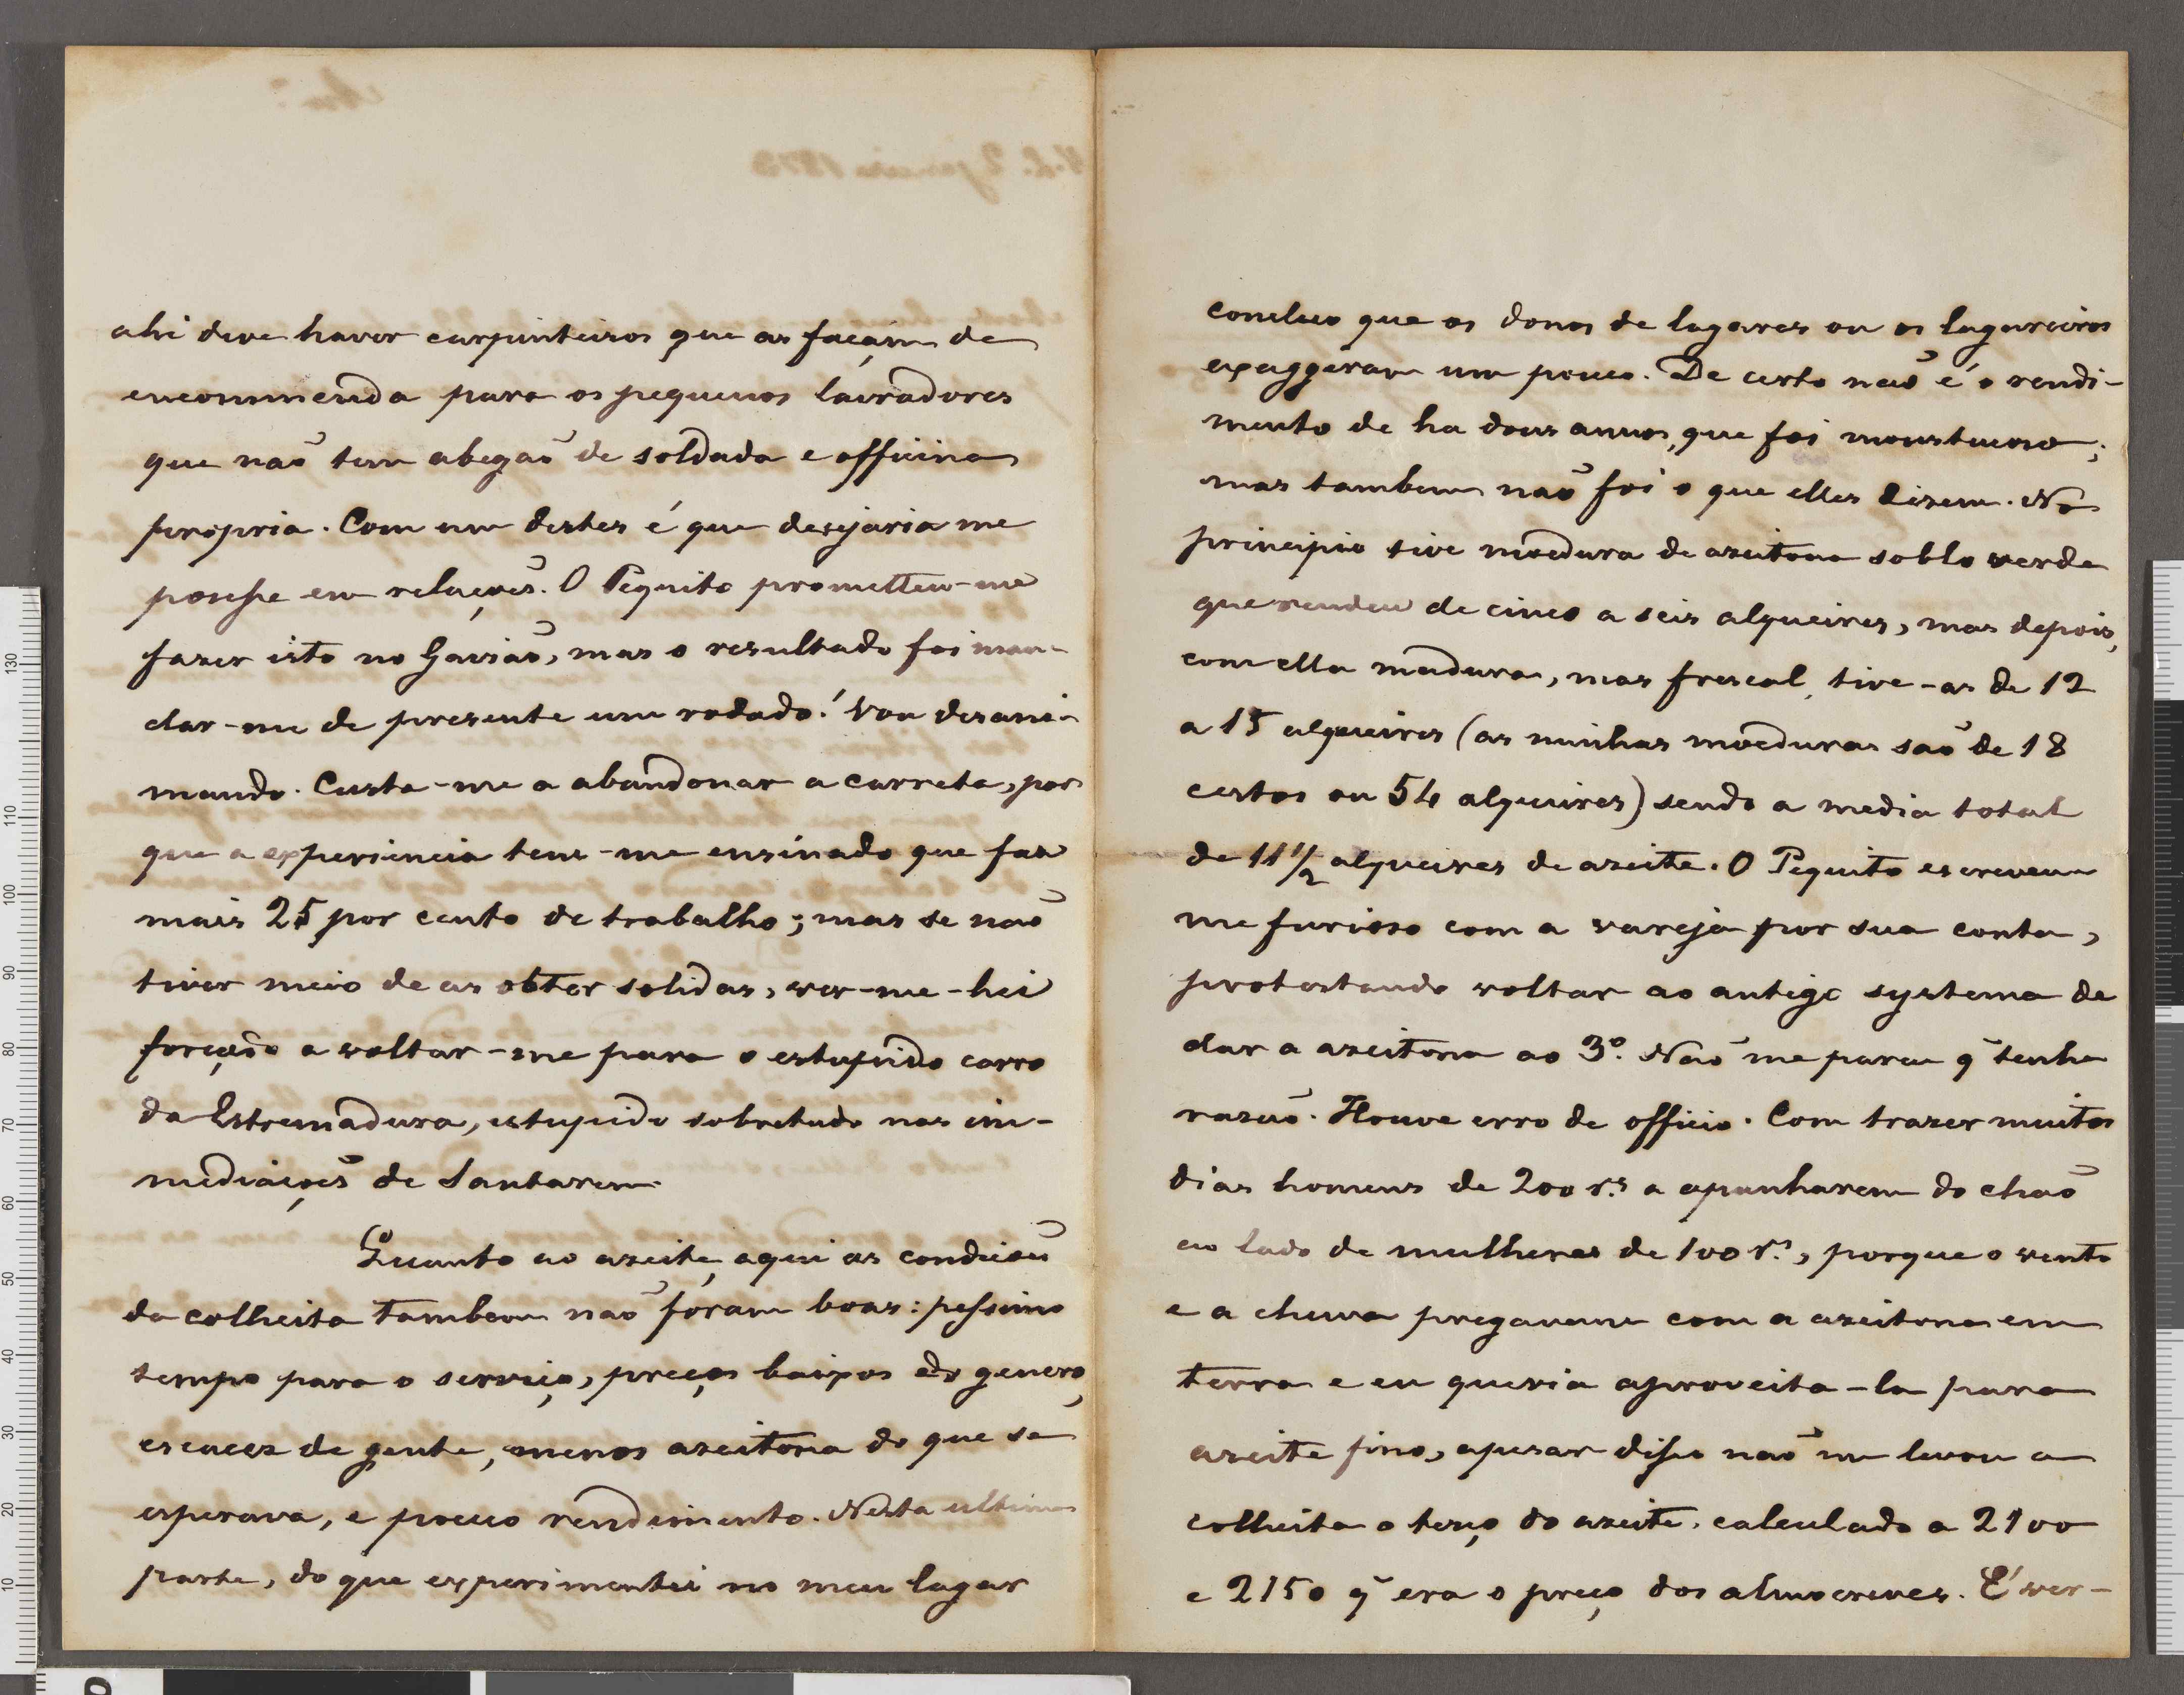 ahi deve haver carpinteiros que as façam de
encommenda para os pequenos lavradores
que não tem abegão de soldada e officina
propria. Com um destes é que desejaria me
posesse em relações. O Pequito prometteu-me
fazer isto no Gavião, mas o resultado foi man-
dar-me de presente um rodado! Vou desani-
mando. Custa-me a abandonar a carreta, por
que a experiencia tem-me ensinado que faz
mais 25 por cento de trabalho; mas se não
tiver meio de as obter solidas, ver-me-hei
forçado a voltar-me para o estupido carro
da Estremadura, estupido sobretudo nas im-
mediações de Santarem.
Quanto ao azeite, aqui as condições
da colheita tambem não foram boas: pessimo
tempo para o serviço, preços baixos do genero,
escacez de gente, menos azeitona do que se
esperava, e pouco rendimento. Nesta ultima
parte, do que experimentei no meu lagar
concluo que os donos de lagares ou os lagareiros
exaggeram um pouco. De certo não é o rendi-
mento de ha dous annos, que foi monstruoso;
mas tambem não foi o que elles dizem. No
principio tive moedura de azeitona soblo verde
que rendeu de cinco a seis alqueires, mas depois,
com ella madura, mas frescal, tive-as de 12
a 15 alqueires (as minhas moeduras são de 18
cestos ou 54 alqueires) sendo a media total
de 11 1/2 alqueires de azeite. O Pequito escreveu
me furioso com a vareja por sua conta,
protestando voltar ao antigo systema de
dar a azeitona ao 3º. Não me parece q̃ tenha
razão. Houve erro de officio. Com trazer muitos
dias homens de 200 r.s a apanharem do chão
ao lado de mulheres de 100 r.s, porque o vento
e a chuva pregavam com a azeitona em
terra e eu queria aproveita-la para
azeite fino, apesar disso não me levou a
colheita o terço do azeite, calculado a 2100
e 2150 q̃ era o preço dos almocreves. É ver-